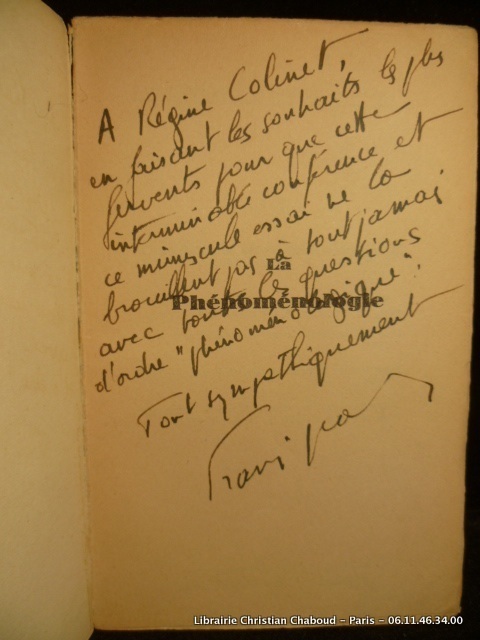 A Régine Colinet,
en faisant les souhaits les plus
fervents pour que cette
interminable conférence et
ce minuscule essai ne la
brouillent pas à tout jamais
avec toutes les questions
d'ordre "phénoménologique".
Tout sympathiquement
La
Phénoménologie
Librairie Christian Chaboud - Paris - 06.11.46.34.00